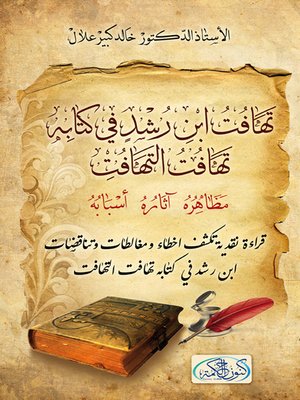 الأستاذ الدكتور خالد كبير علال
تهافت ابن رشد في كتابه
تهافت التهافت
مظاهره آثاره أسبابه
قراءة نقدية تكشف اخطاء ومغالطات وتناقضات
ابن رشد في كتابه تهافت التهافت
كنوز الحكمة